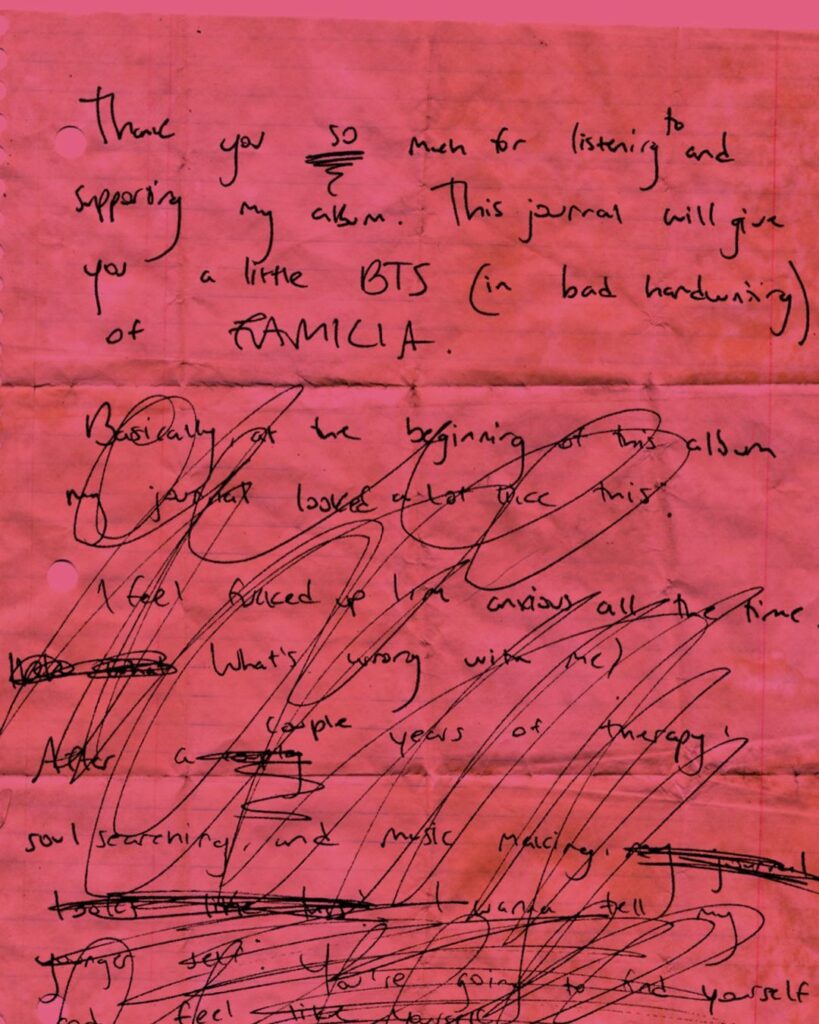 Thank you so much for listening to and
supporting my album. This journal will give
you a little BTS (in bad handwriting)
of FAMILIA.
Basically, at the beginning of this album
my journal looked a lot like this:
I feel fucked up I'm anxious all the time.
What's wrong with me?
After a couple years of therapy,
soul searching, and music making, my journal
looked like this: I wanna tell my
younger self: You're going to find yourself
and feel like yourself